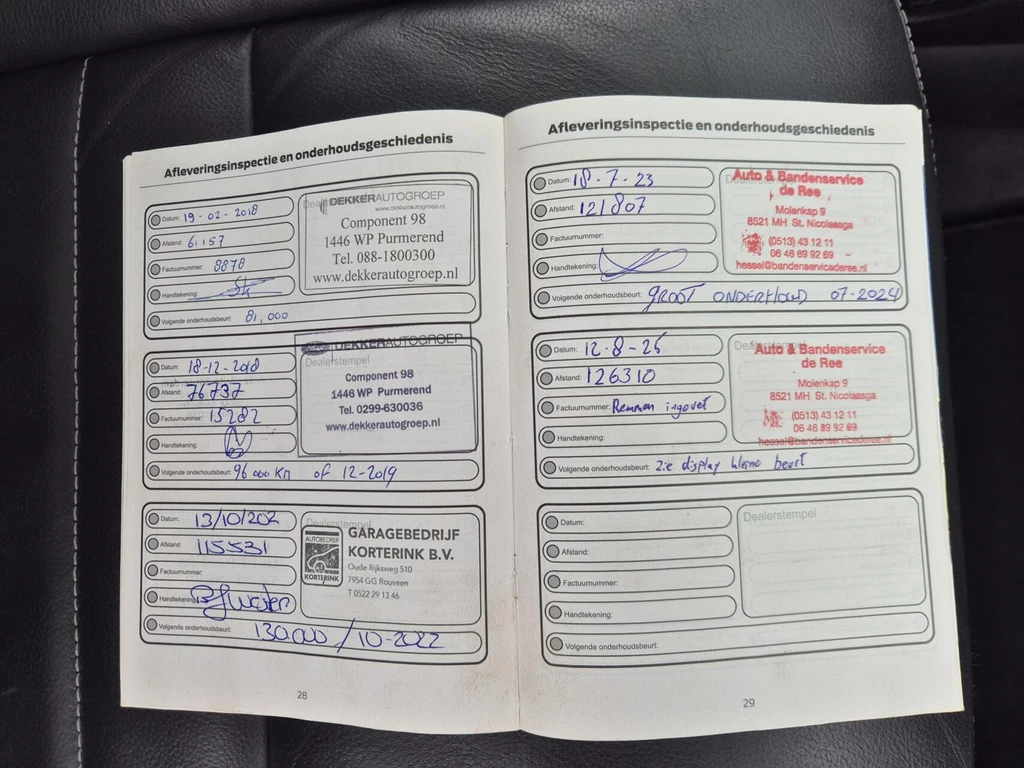 Afleveringsinspectie en onderhoudsgeschiedenis
Datum: 19-02-2018
Afstand: 61157
Factuurnummer: 8878
Handtekening:
Volgende onderhoudsbeurt: 81,000
DEKKERAUTOGROEP
www.dekkerautogroep.nl
Component 98
1446 WP Purmerend
Tel. 088-1800300
www.dekkerautogroep.nl
Datum: 18-12-2018
Afstand: 76737
Factuurnummer: 15282
Handtekening:
Volgende onderhoudsbeurt: 96000 KM of 12-2019
DEKKERAUTOGROEP
Dealerstempel
Component 98
1446 WP Purmerend
Tel. 0299-630036
www.dekkerautogroep.nl
Datum: 13/10/202
Afstand: 115531
Factuurnummer:
Handtekening:
Volgende onderhoudsbeurt: 130.000/10-2022
Dealerstempel
AUTOBEDRIJF
KORTERINK
GARAGEBEDRIJF
KORTERINK B.V.
Oude Rijksweg 510
7954 GG Rouveen
T 0522 29 13 46
28
Afleveringsinspectie en onderhoudsgeschiedenis
Datum: 18-7-23
Afstand: 121807
Factuurnummer:
Handtekening:
Volgende onderhoudsbeurt: GROOT ONDERHOUD 07-2024
Auto & Bandenservice
de Ree
Molenkap 9
8521 MH St. Nicolaasga
(0513) 43 12 11
06 46 89 92 69
hessel@bandenservicederee.nl
Datum: 12-8-25
Afstand: 126310
Factuurnummer: Remmen ingevet
Handtekening:
Volgende onderhoudsbeurt: zie display kleine beurt
Auto & Bandenservice
de Ree
Molenkap 9
8521 MH St. Nicolaasga
(0513) 43 12 11
06 46 89 92 69
hessel@bandenservicederee.nl
Datum:
Afstand:
Factuurnummer:
Handtekening:
Volgende onderhoudsbeurt:
Dealerstempel
29